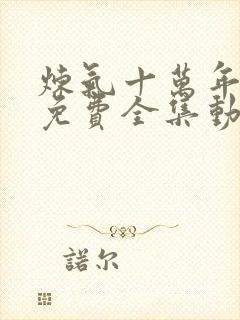 煉氣十萬年
免費全集動
諾尔